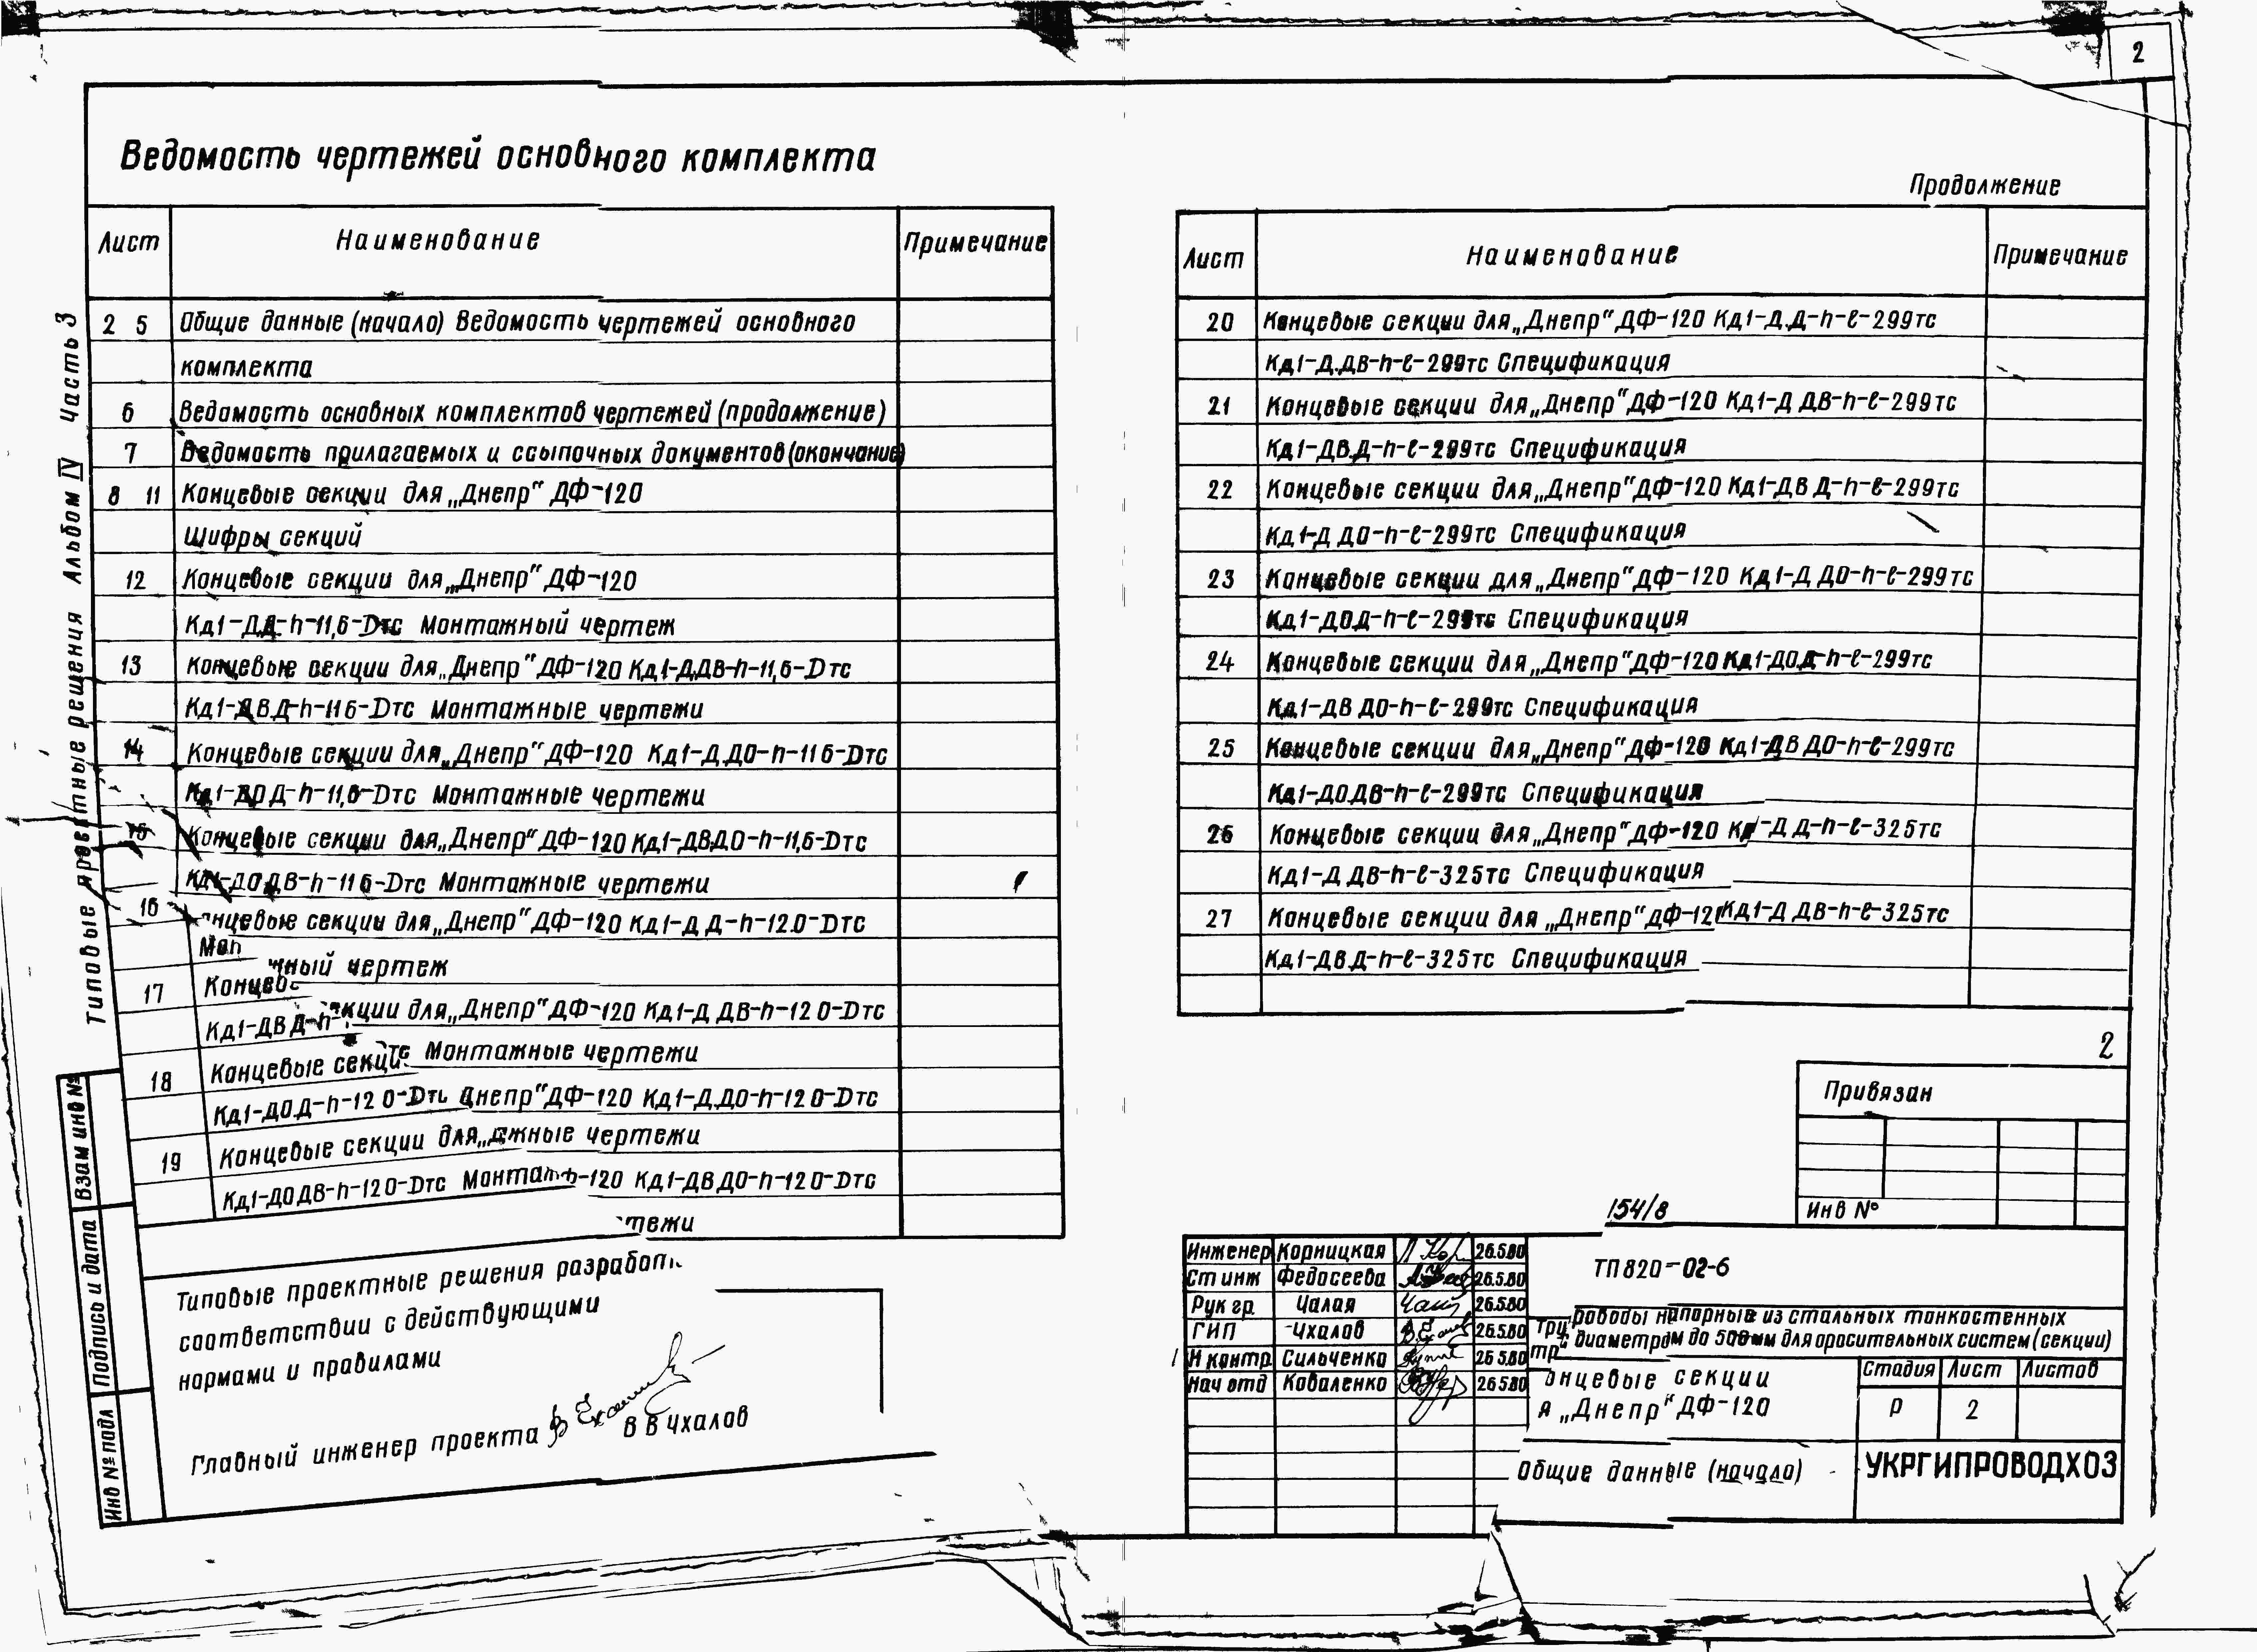 2
Ведомость чертежей основного комплекта
Лист Наименование Примечание
2 5 Общие данные (начало) Ведомость чертежей основного
комплекта
6 Ведомость основных комплектов чертежей (продолжение)
7 Ведомость прилагаемых и ссылочных документов (окончание)
8 11 Концевые секции для „Днепр" ДФ-120
Шифры секций
12 Концевые секции для „Днепр" ДФ-120
Кд1-Д.Д-h-11,6-Dтс Монтажный чертеж
13 Концевые секции для „Днепр" ДФ-120 Кд1-Д.ДВ-h-11,6-Dтс
Кд1-ДВ.Д-h-11 6-Dтс Монтажные чертежи
14 Концевые секции для „Днепр" ДФ-120 Кд1-Д.ДО-h-11 6-Dтс
Кд1-ДО Д-h-11,6-Dтс Монтажные чертежи
15 Концевые секции для „Днепр" ДФ-120 Кд1-ДВ.ДО-h-11,6-Dтс
Кд1-ДО.ДВ-h-11 6-Dтс Монтажные чертежи
16 нцевые секции для „Днепр" ДФ-120 Кд1-Д Д-h-12.0-Dтс
Мон
жный чертеж
17 Концев
кции для „Днепр" ДФ-120 Кд1-Д ДВ-h-12 0-Dтс
Кд1-ДВ Д-h-
тс Монтажные чертежи
18 Концевые секци
Днепр" ДФ-120 Кд1-Д.ДО-h-12 0-Dтс
Кд1-ДО.Д-h-12 0-Dтс
жные чертежи
19 Концевые секции для „
-120 Кд1-ДВ ДО-h-12 0-Dтс
Кд1-ДО ДВ-h-12 0-Dтс Монта
тежи
Типовые проектные решения разработ
соответствии с действующими
нормами и правилами
Главный инженер проекта В В Чхалов
Типовые проектные решения Альбом IV Часть 3
Взам инв №
Подпись и дата
Инв № подл
Продолжение
Лист Наименование Примечание
20 Концевые секции для „Днепр" ДФ-120 Кд1-Д.Д-h-ℓ-299тс
Кд1-Д.ДВ-h-ℓ-299тс Спецификация
21 Концевые секции для „Днепр" ДФ-120 Кд1-Д ДВ-h-ℓ-299тс
Кд1-ДВ.Д-h-ℓ-299тс Спецификация
22 Концевые секции для „Днепр" ДФ-120 Кд1-ДВ Д-h-ℓ-299тс
Кд1-Д ДО-h-ℓ-299тс Спецификация
23 Концевые секции для „Днепр" ДФ-120 Кд1-Д ДО-h-ℓ-299тс
Кд1-ДО.Д-h-ℓ-299тс Спецификация
24 Концевые секции для „Днепр" ДФ-120 Кд1-ДО.Д-h-ℓ-299тс
Кд1-ДВ ДО-h-ℓ-299тс Спецификация
25 Концевые секции для „Днепр" ДФ-120 Кд1-ДВ ДО-h-ℓ-299тс
Кд1-ДО.ДВ-h-ℓ-299тс Спецификация
26 Концевые секции для „Днепр" ДФ-120 Кд1-Д Д-h-ℓ-325тс
Кд1-Д ДВ-h-ℓ-325тс Спецификация
27 Концевые секции для „Днепр" ДФ-120 Кд1-Д ДВ-h-ℓ-325тс
Кд1-ДВ.Д-h-ℓ-325тс Спецификация
2
Привязан
Инв №
154/8
Инженер Корницкая 26.5.80
Ст инж Федосеева 26.5.80
Рук гр Чалая 26.5.80
ГИП Чхалов 26.5.80
Н контр Сильченко 26 5.80
Нач отд Коваленко 26 5.80
ТП 820-02-6
Тру роводы напорные из стальных тонкостенных
тр диаметром до 500 мм для оросительных систем (секции)
онцевые секции
я „Днепр" ДФ-120
Стадия Лист Листов
Р 2
Общие данные (начало)
УКРГИПРОВОДХОЗ